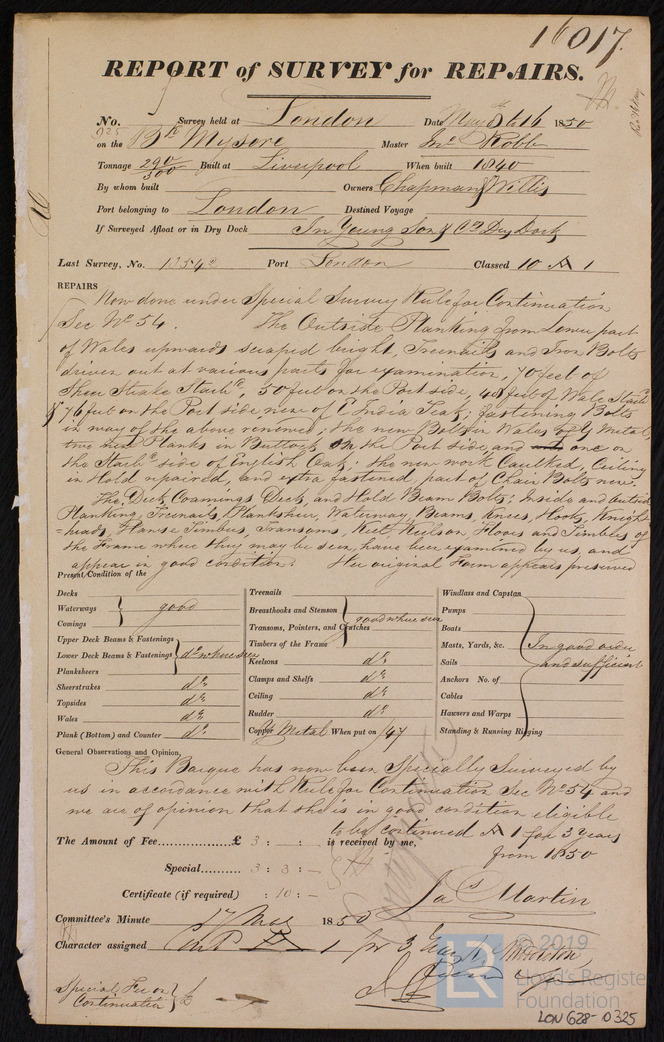 16017.
REPORT of SURVEY for REPAIRS.
No. 925 Survey held at London Date May 8 & 16 1850
on the Bk Mysore Master Jno Robb
Tonnage 290/300 Built at Liverpool When built 1840
By whom built Owners Chapman & Willis
Port belonging to London Destined Voyage
If Surveyed Afloat or in Dry Dock In Young Son & Co Dry Dock
Last Survey, No. Port London Classed 10 A 1
REPAIRS Now done under Special Survey Rule for Continuation
Sec No 54. The Outside Planking from Lower part
of Wales upwards scraped bright, Treenails and Iron Bolts
driven out at various parts for examination, 70 feet of
Sheer Strake Starbd, 50 feet on the Port side, 48 feet of Wale Starbd
& 76 feet on the Port side new of E India Teak; fastening Bolts
in way of the above renewed; the new Bolts in Wales of Y Metal,
two Planks in Buttock on the Port side, and one on
the Starbd side of English Oak; the new work Caulked, Ceiling
in Hold repaired, and extra fastened, part of Chain Bolts new.
The Deck, Coamings Deck, and Hold Beam Bolts; Inside and Outside
Planking, Treenails, Plankshier, Waterway, Beams, Knees, Hooks, Knight
=heads, Hawse Timbers, Transoms, Keel, Keelson, Floors and Timbers of
the Frame where they may be seen, have been examined by us, and
appear in good condition. Her original Form appears preserved
Present Condition of the
Decks
Waterways good
Comings
Upper Deck Beams & Fastenings
Lower Deck Beams & Fastenings do where seen
Planksheers
Sheerstrakes do
Topsides do
Wales do
Plank (Bottom) and Counter do
Treenails
Breasthooks and Stemson good where seen
Transoms, Pointers, and Crutches
Timbers of the Frame
Keelsons do
Clamps and Shelfs do
Ceiling do
Rudder do
Copper Y Metal When put on /47
Windlass and Capstan
Pumps
Boats
Masts, Yards, &c. In good order
Sails and sufficient
Anchors No. of
Cables
Hawsers and Warps
Standing & Running Rigging
General Observations and Opinion,
This Barque has now been Specially Surveyed by
us in accordance with Rule for Continuation Sec No 54 and
we are of opinion that she is in good condition eligible
to be continued A 1 for 3 years
from 1850
The Amount of Fee......£ 3 : - : - is received by me,
Special......... 3 : 3 : -
Certificate (if required) : 10 : -
Jas Martin
Committee's Minute 17 May 1850
Character assigned Cont A 1 for 3 Years
Special Fee on
Continuation
© 2019
LR
Lloyd's Register
Foundation
LON 628-0325